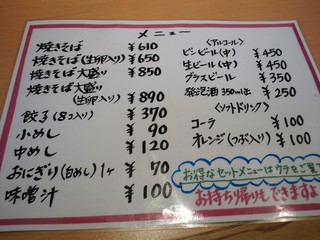 メニュー
焼きそば ¥610
焼きそば(生卵入り) ¥650
焼きそば大盛り ¥850
焼きそば大盛り
(生卵入り) ¥890
餃子(8コ入り) ¥370
小めし ¥90
中めし ¥120
おにぎり(白めし)1ヶ ¥70
味噌汁 ¥100
<アルコール>
ビンビール(中) ¥450
生ビール(中) ¥450
グラスビール ¥350
発泡酒 350ml缶 ¥250
<ソフトドリンク>
コーラ ¥100
オレンジ(つぶ入り) ¥100
お得なセットメニューはウラをご覧
お持ち帰りもできますよ